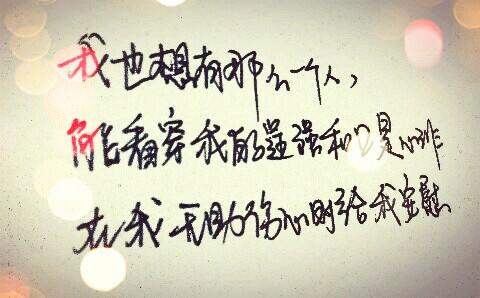 我也想有那么一个人，
能看穿我的逞强和口是心非
在我无助伤心时给我安慰